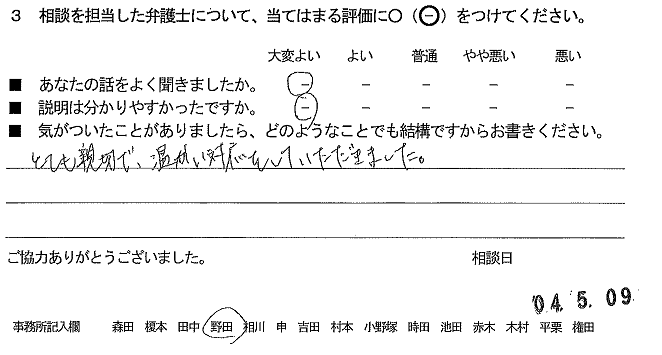 3 相談を担当した弁護士について、当てはまる評価に○(⊖)をつけてください。
大変よい よい 普通 やや悪い 悪い
■ あなたの話をよく聞きましたか。 − − − − −
■ 説明は分かりやすかったですか。 − − − − −
■ 気がついたことがありましたら、どのようなことでも結構ですからお書きください。
とても親切で、温かい対応をしていただきました。
ご協力ありがとうございました。 相談日
'04. 5. 09
事務所記入欄 森田 榎本 田中 野田 相川 申 吉田 村本 小野塚 時田 池田 赤木 木村 平栗 権田